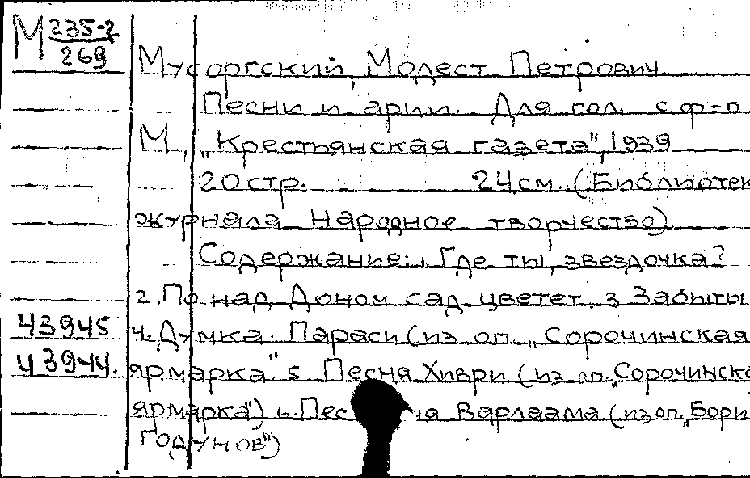 М 235-2
269
Мусоргский, Модест Петрович
Песни и арии. Для гол. с ф-п
М., „Крестьянская газета", 1939
20 стр. 24 см. (Библиотек
журнала Народное творчество)
Содержание: 1. Где ты, звездочка?
2. По над Доном сад цветет 3 Забыты
43945 4. Думка Параси (из оп. „Сорочинская
43944. ярмарка" 5 Песня Хиври (из оп. „Сорочинска
ярмарка") 6. Песня Варлаама (из оп. „Бори
Годунов")